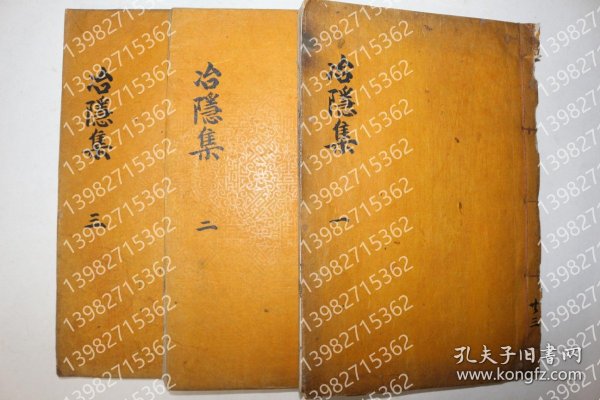 冶隱集
一
共三
冶隱集
二
冶隱集
三
13982715362
孔夫子旧書网
www.kongfz.com